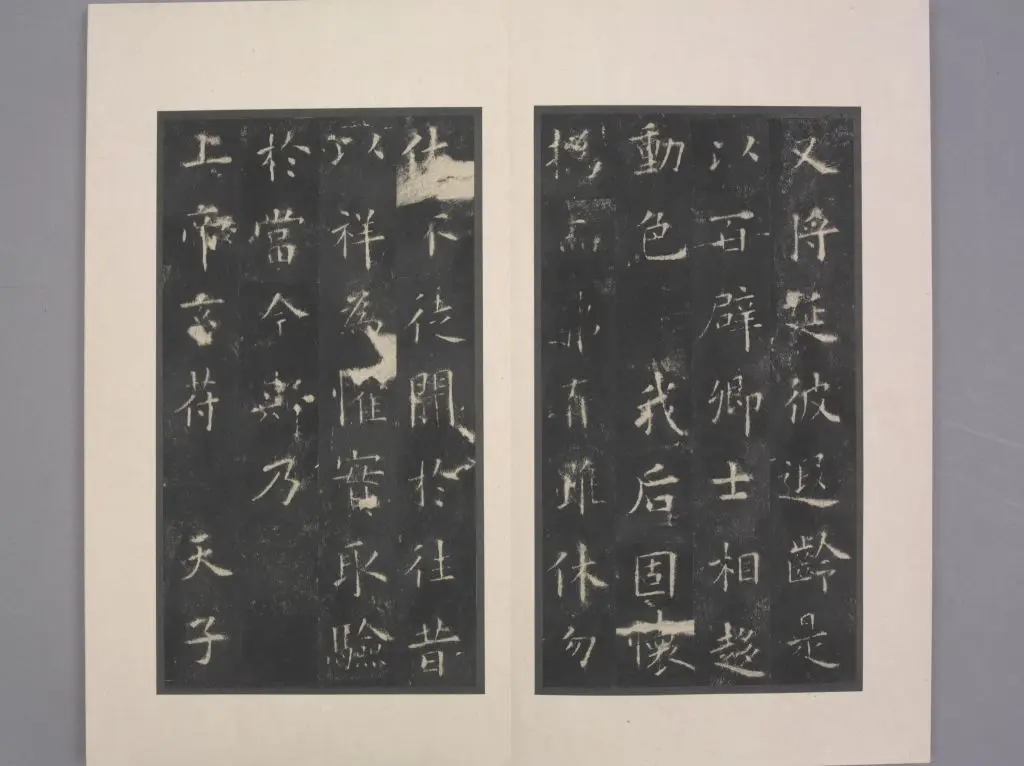 又將延彼遐齡是
以百辟卿士相趍
動色 我后固懷
而弗有雖休勿
休不徒聞於往昔
以祥為懼實取驗
於當今斯乃
上帝玄符 天子